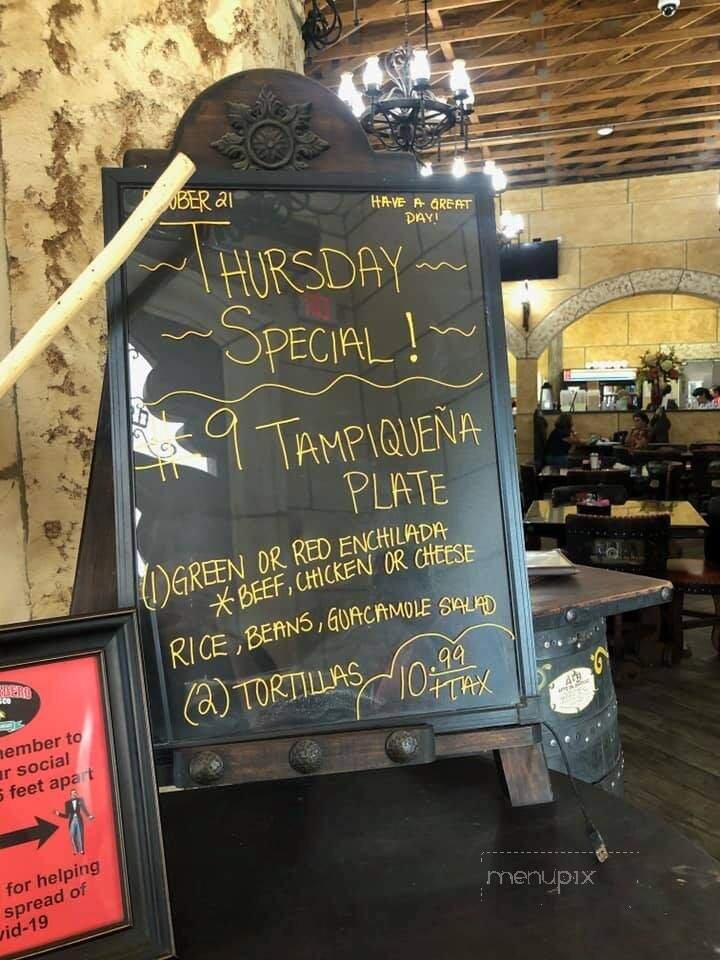 21
HAVE A GREAT
DAY!
THURSDAY
SPECIAL!
#9 TAMPIQUEÑA
PLATE
(1) GREEN OR RED ENCHILADA
* BEEF, CHICKEN OR CHEESE
RICE, BEANS, GUACAMOLE SALAD
(2) TORTILLAS 10.99
+TAX
to
social
6 feet apart
for helping
spread of
vid-19
menupix